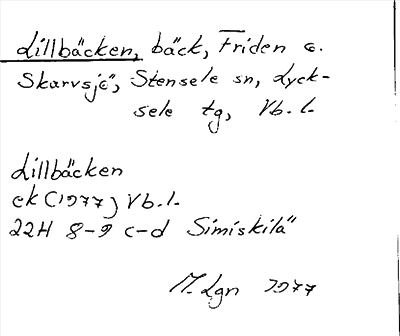 Lillbäcken, bäck, Friden o.
Skarvsjö, Stensele sn, Lyck-
sele tg, Vb. l.
Lillbäcken
ek (1977) Vb. l.
22H 8-9 c-d Simiskilä"
M. Lgn 1977